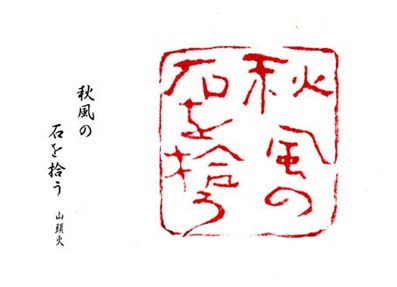 秋風の
石を拾う
山頭火
秋風の
石を拾う